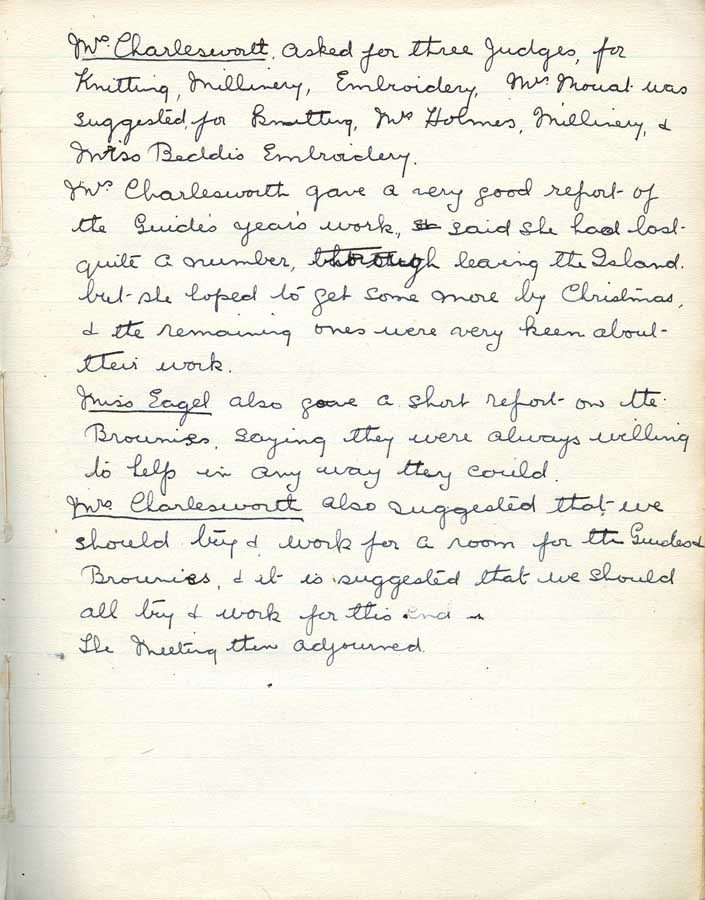 Mrs Charlesworth, asked for three Judges, for
Knitting, Millinery, Embroidery, Mrs Mouat was
suggested, for Knitting, Mrs Holmes, Millinery, &
Miss Beddis Embroidery.
Mrs Charlesworth gave a very good report of
the Guide's year's work, & said she had lost
quite a number, through leaving the Island.
but she hoped to get some more by Christmas,
& the remaining ones were very keen about
their work.
Miss Eagel also gave a short report on the
Brownies, saying they were always willing
to help in any way they could.
Mrs. Charlesworth also suggested that we
should try & work for a room for the Guides &
Brownies, & it is suggested that we should
all try & work for this end
The Meeting then adjourned.